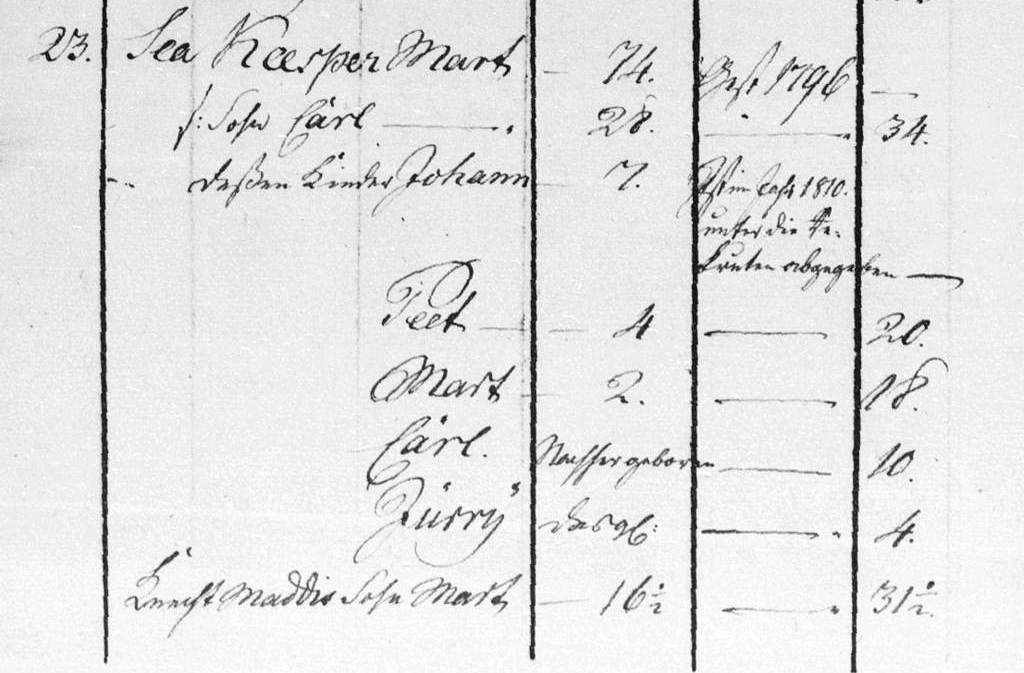 23. Sea Keesper Mart — 74. Gest 1796 —
s: Sohn Carl — 28. — 34.
deßen Kinder Johann — 7. Ist im Jahr 1810.
unter die Re-
kruten abgegeben —
Peet — 4 — 20.
Mart — 2. — 18.
Carl. Nachher geboren — 10.
Jürry desgl: — 4.
Knecht Maddis Sohn Mart — 16½ — 31½.